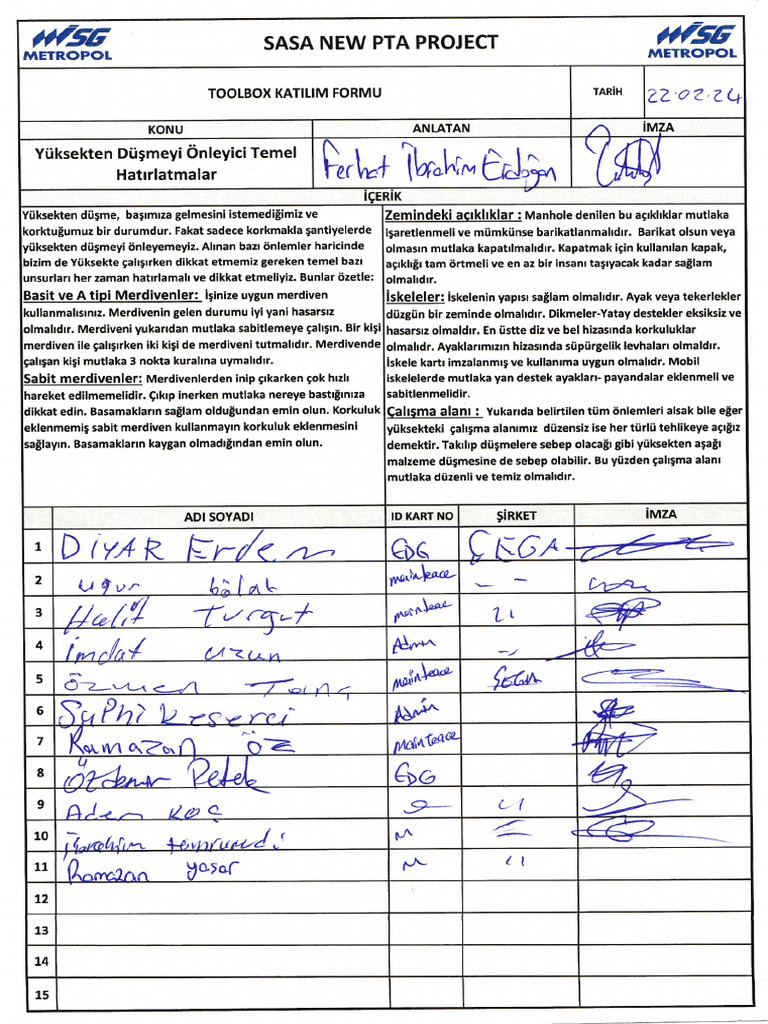 İSG
METROPOL
SASA NEW PTA PROJECT
İSG
METROPOL
TOOLBOX KATILIM FORMU
TARİH
22.02.24
KONU
ANLATAN
İMZA
Yüksekten Düşmeyi Önleyici Temel
Hatırlatmalar
Ferhat İbrahim Erdoğan
İÇERİK
Yüksekten düşme, başımıza gelmesini istemediğimiz ve
korktuğumuz bir durumdur. Fakat sadece korkmakla şantiyelerde
yüksekten düşmeyi önleyemeyiz. Alınan bazı önlemler haricinde
bizim de Yüksekte çalışırken dikkat etmemiz gereken temel bazı
unsurları her zaman hatırlamalı ve dikkat etmeliyiz. Bunlar özetle:
Basit ve A tipi Merdivenler: İşinize uygun merdiven
kullanmalısınız. Merdivenin gelen durumu iyi yani hasarsız
olmalıdır. Merdiveni yukarıdan mutlaka sabitlemeye çalışın. Bir kişi
merdiven ile çalışırken iki kişi de merdiveni tutmalıdır. Merdivende
çalışan kişi mutlaka 3 nokta kuralına uymalıdır.
Sabit merdivenler: Merdivenlerden inip çıkarken çok hızlı
hareket edilmemelidir. Çıkıp inerken mutlaka nereye bastığınıza
dikkat edin. Basamakların sağlam olduğundan emin olun. Korkuluk
eklenmemiş sabit merdiven kullanmayın korkuluk eklenmesini
sağlayın. Basamakların kaygan olmadığından emin olun.
Zemindeki açıklıklar : Manhole denilen bu açıklıklar mutlaka
işaretlenmeli ve mümkünse barikatlanmalıdır. Barikat olsun veya
olmasın mutlaka kapatılmalıdır. Kapatmak için kullanılan kapak,
açıklığı tam örtmeli ve en az bir insanı taşıyacak kadar sağlam
olmalıdır.
İskeleler: İskelenin yapısı sağlam olmalıdır. Ayak veya tekerlekler
düzgün bir zeminde olmalıdır. Dikmeler-Yatay destekler eksiksiz ve
hasarsız olmaldır. En üstte diz ve bel hizasında korkuluklar
olmalıdır. Ayaklarımızın hizasında süpürgelik levhaları olmaldır.
İskele kartı imzalanmış ve kullanıma uygun olmalıdır. Mobil
iskelelerde mutlaka yan destek ayakları- payandalar eklenmeli ve
sabitlenmelidir.
Çalışma alanı : Yukarıda belirtilen tüm önlemleri alsak bile eğer
yüksekteki çalışma alanımız düzensiz ise her türlü tehlikeye açığız
demektir. Takılıp düşmelere sebep olacağı gibi yüksekten aşağı
malzeme düşmesine de sebep olabilir. Bu yüzden çalışma alanı
mutlaka düzenli ve temiz olmalıdır.
ADI SOYADI ID KART NO ŞİRKET İMZA
1 DİYAR Erdem EDG ÇEGA
2 uğur bölat mainteace - -
3 Halit Turgut mainteace
4 İmdat uzun Admin
5 özmen Tanç mainteace SEGA
6 Suphi keserci Admin
7 Ramazan ÖZ mainteace
8 Özdemir Petek EDG
9 Adem KOÇ "
10 İbrahim M
11 Ramazan yaşar M "
12
13
14
15